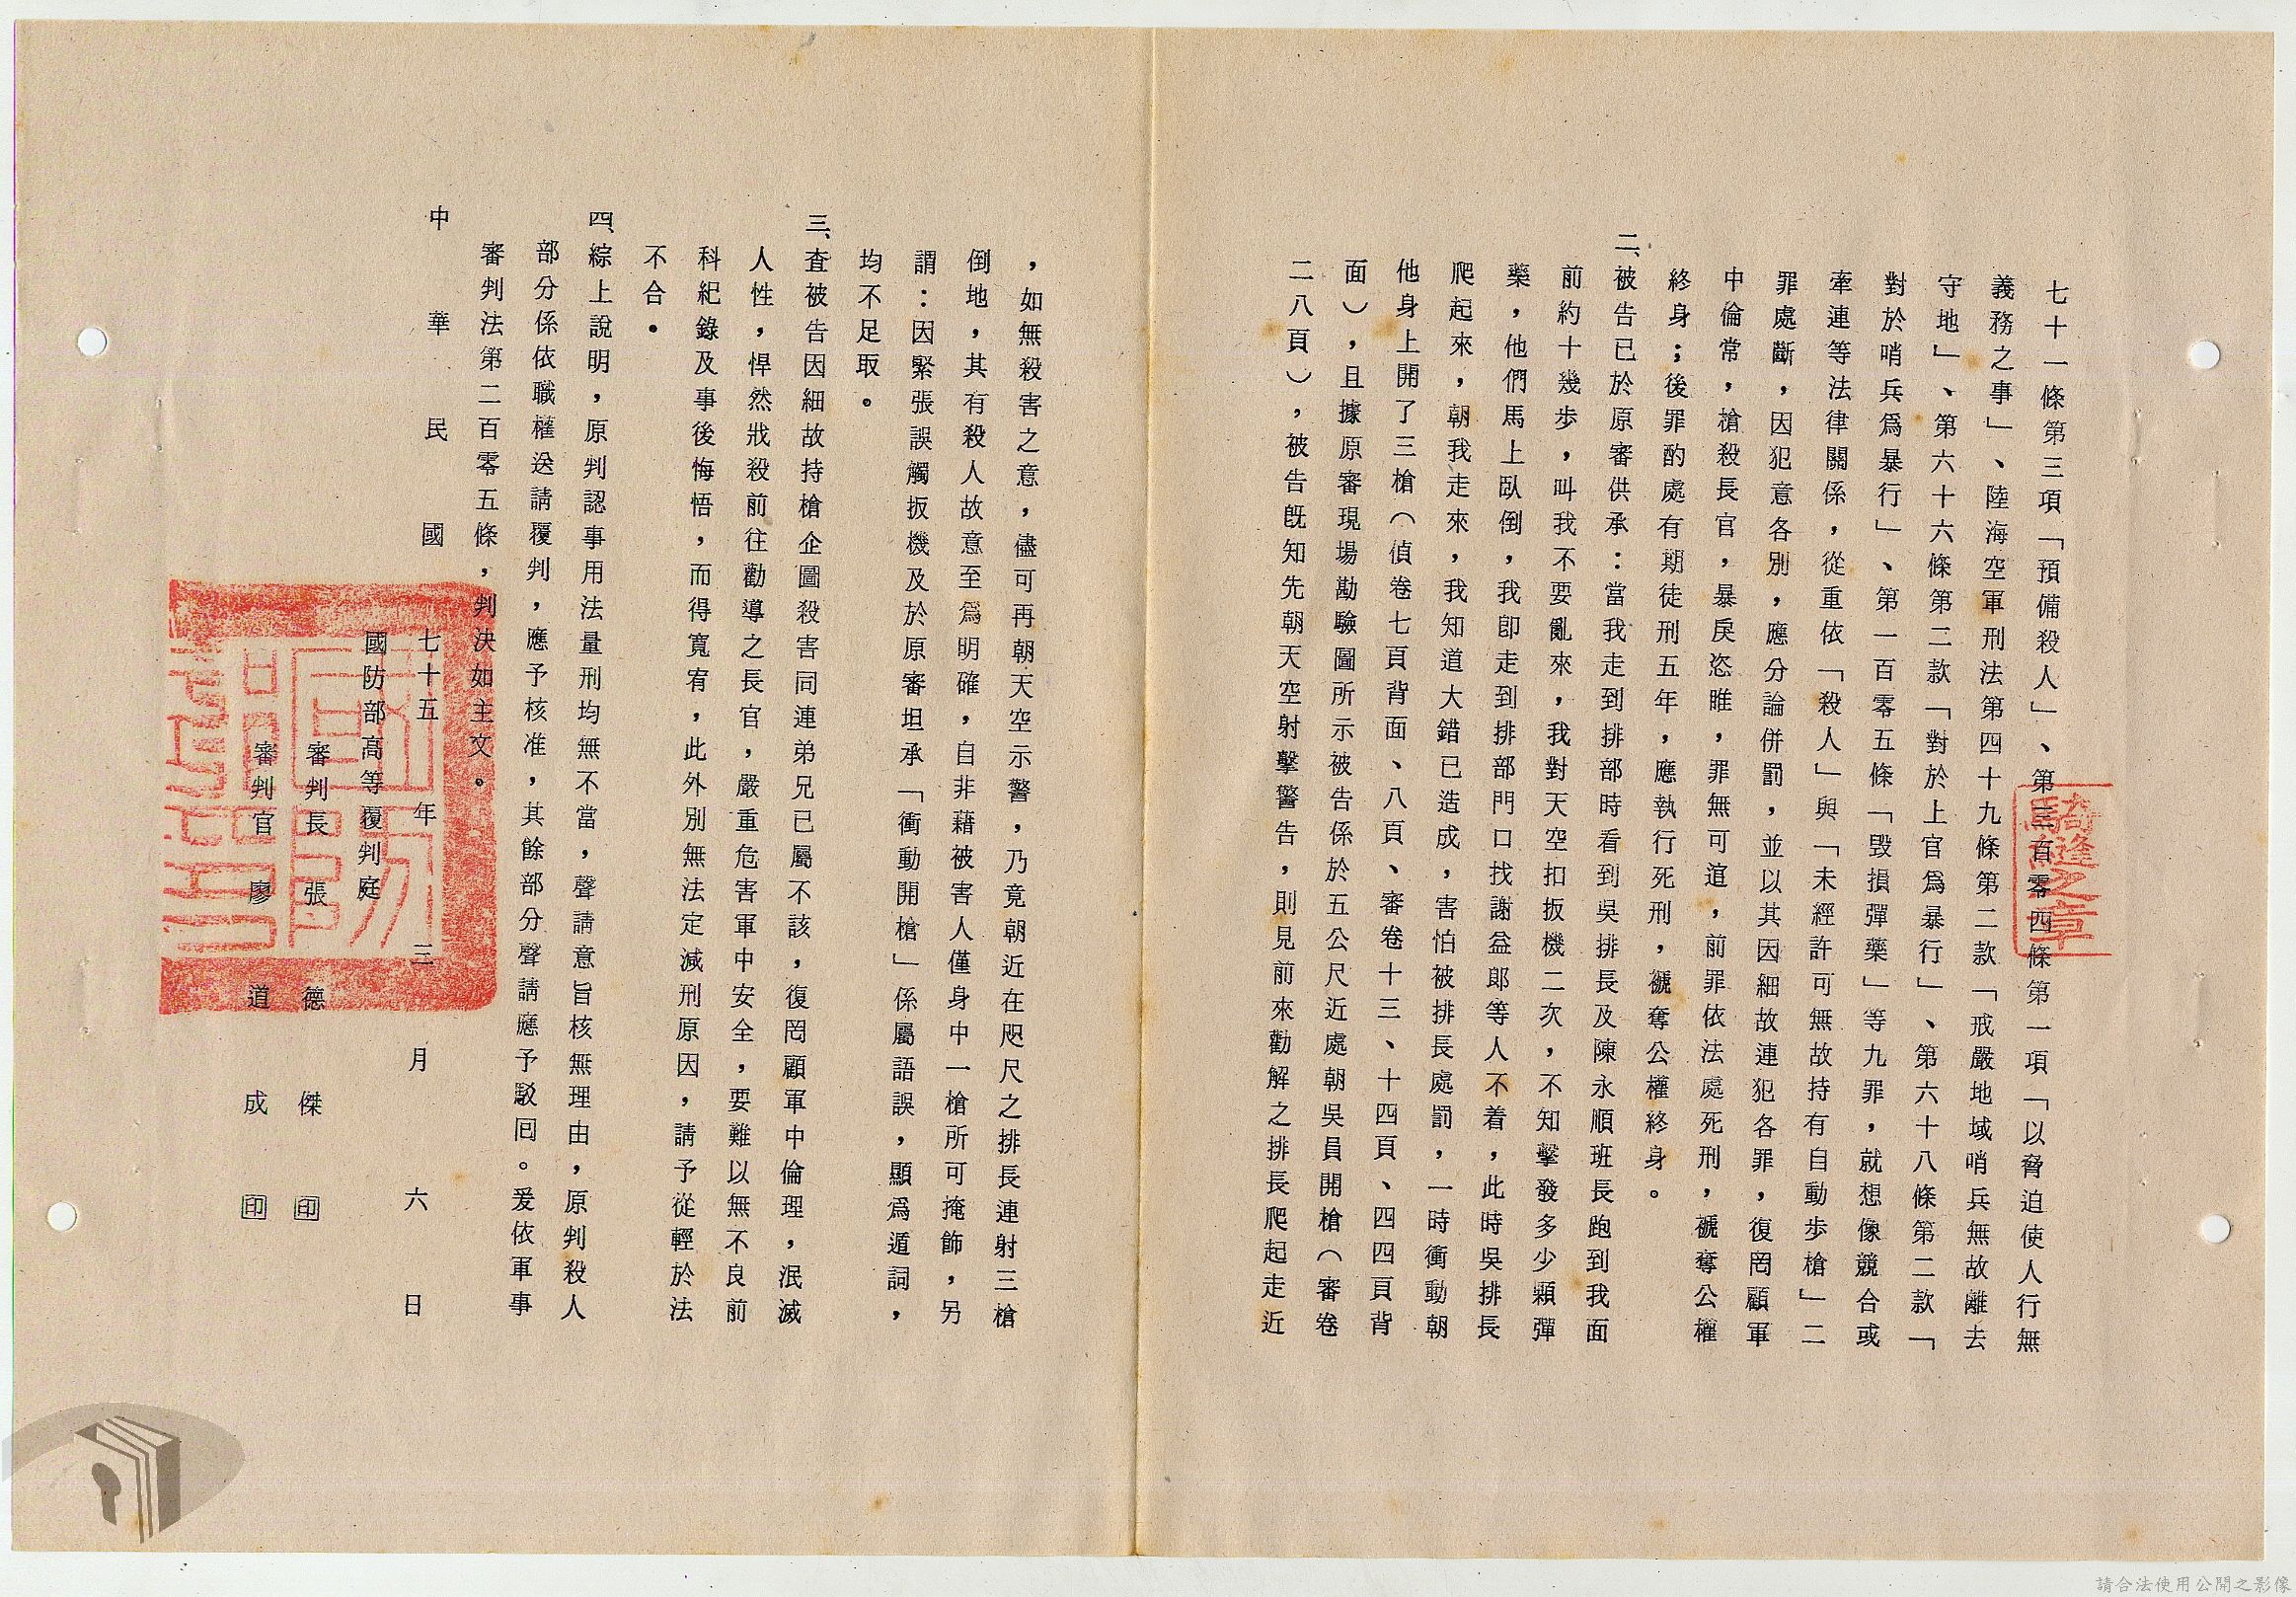 七十一條第三項「預備殺人」、第三百零四條第一項「以脅迫使人行無
義務之事」、陸海空軍刑法第四十九條第二款「戒嚴地域哨兵無故離去
守地」、第六十六條第二款「對於上官爲暴行」、第六十八條第二款「
對於哨兵爲暴行」、第一百零五條「毀損彈藥」等九罪，就想像競合或
牽連等法律關係，從重依「殺人」與「未經許可無故持有自動步槍」二
罪處斷，因犯意各別，應分論併罰，並以其因細故連犯各罪，復罔顧軍
中倫常，槍殺長官，暴戾恣睢，罪無可逭，前罪依法處死刑，褫奪公權
終身；後罪酌處有期徒刑五年，應執行死刑，褫奪公權終身。
二、被告已於原審供承：當我走到排部時看到吳排長及陳永順班長跑到我面
前約十幾步，叫我不要亂來，我對天空扣扳機二次，不知擊發多少顆彈
藥，他們馬上臥倒，我卽走到排部門口找謝益郎等人不着，此時吳排長
爬起來，朝我走來，我知道大錯已造成，害怕被排長處罰，一時衝動朝
他身上開了三槍（偵卷七頁背面、八頁、審卷十三、十四頁、四四頁背
面），且據原審現場勘驗圖所示被告係於五公尺近處朝吳員開槍（審卷
二八頁），被告旣知先朝天空射擊警告，則見前來勸解之排長爬起走近
，如無殺害之意，儘可再朝天空示警，乃竟朝近在咫尺之排長連射三槍
倒地，其有殺人故意至爲明確，自非藉被害人僅身中一槍所可掩飾，另
謂：因緊張誤觸扳機及於原審坦承「衝動開槍」係屬語誤，顯爲遁詞，
均不足取。
三、查被告因細故持槍企圖殺害同連弟兄已屬不該，復罔顧軍中倫理，泯滅
人性，悍然戕殺前往勸導之長官，嚴重危害軍中安全，要難以無不良前
科紀錄及事後悔悟，而得寬宥，此外別無法定減刑原因，請予從輕於法
不合。
四、綜上說明，原判認事用法量刑均無不當，聲請意旨核無理由，原判殺人
部分係依職權送請覆判，應予核准，其餘部分聲請應予駁囘。爰依軍事
審判法第二百零五條，判決如主文。
中華民國七十五年三月六日
國防部高等覆判庭
審判長 張德傑 印
審判官 廖道成 印
騎縫之章
請合法使用公開之影像